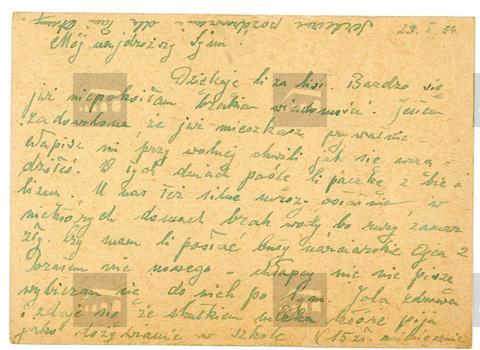 Serdeczne pozdrowienia dla
29. I 54.
Mój najdroższy Synu.
Dziękuję Ci za list. Bardzo się
już niepokoiłam brakiem wiadomości. Jestem
zadowolona, że już mieszkasz prywatnie
Napisz mi przy wolnej chwili jak się urzą-
dziłeś. W tych dniach poślę Ci paczkę z bie-
lizną. U nas też silne mrozy w
niektórych domach brak wody, bo rury zamar
zły. Czy mam Ci posłać buty narciarskie
Poza tem nic nowego - chłopcy nic nie piszą
wybieram się do nich po Jola zdrowa
i zdaje się że skutkiem mleka które pija
jako dożywianie w szkole (15 zł. miesięcznie